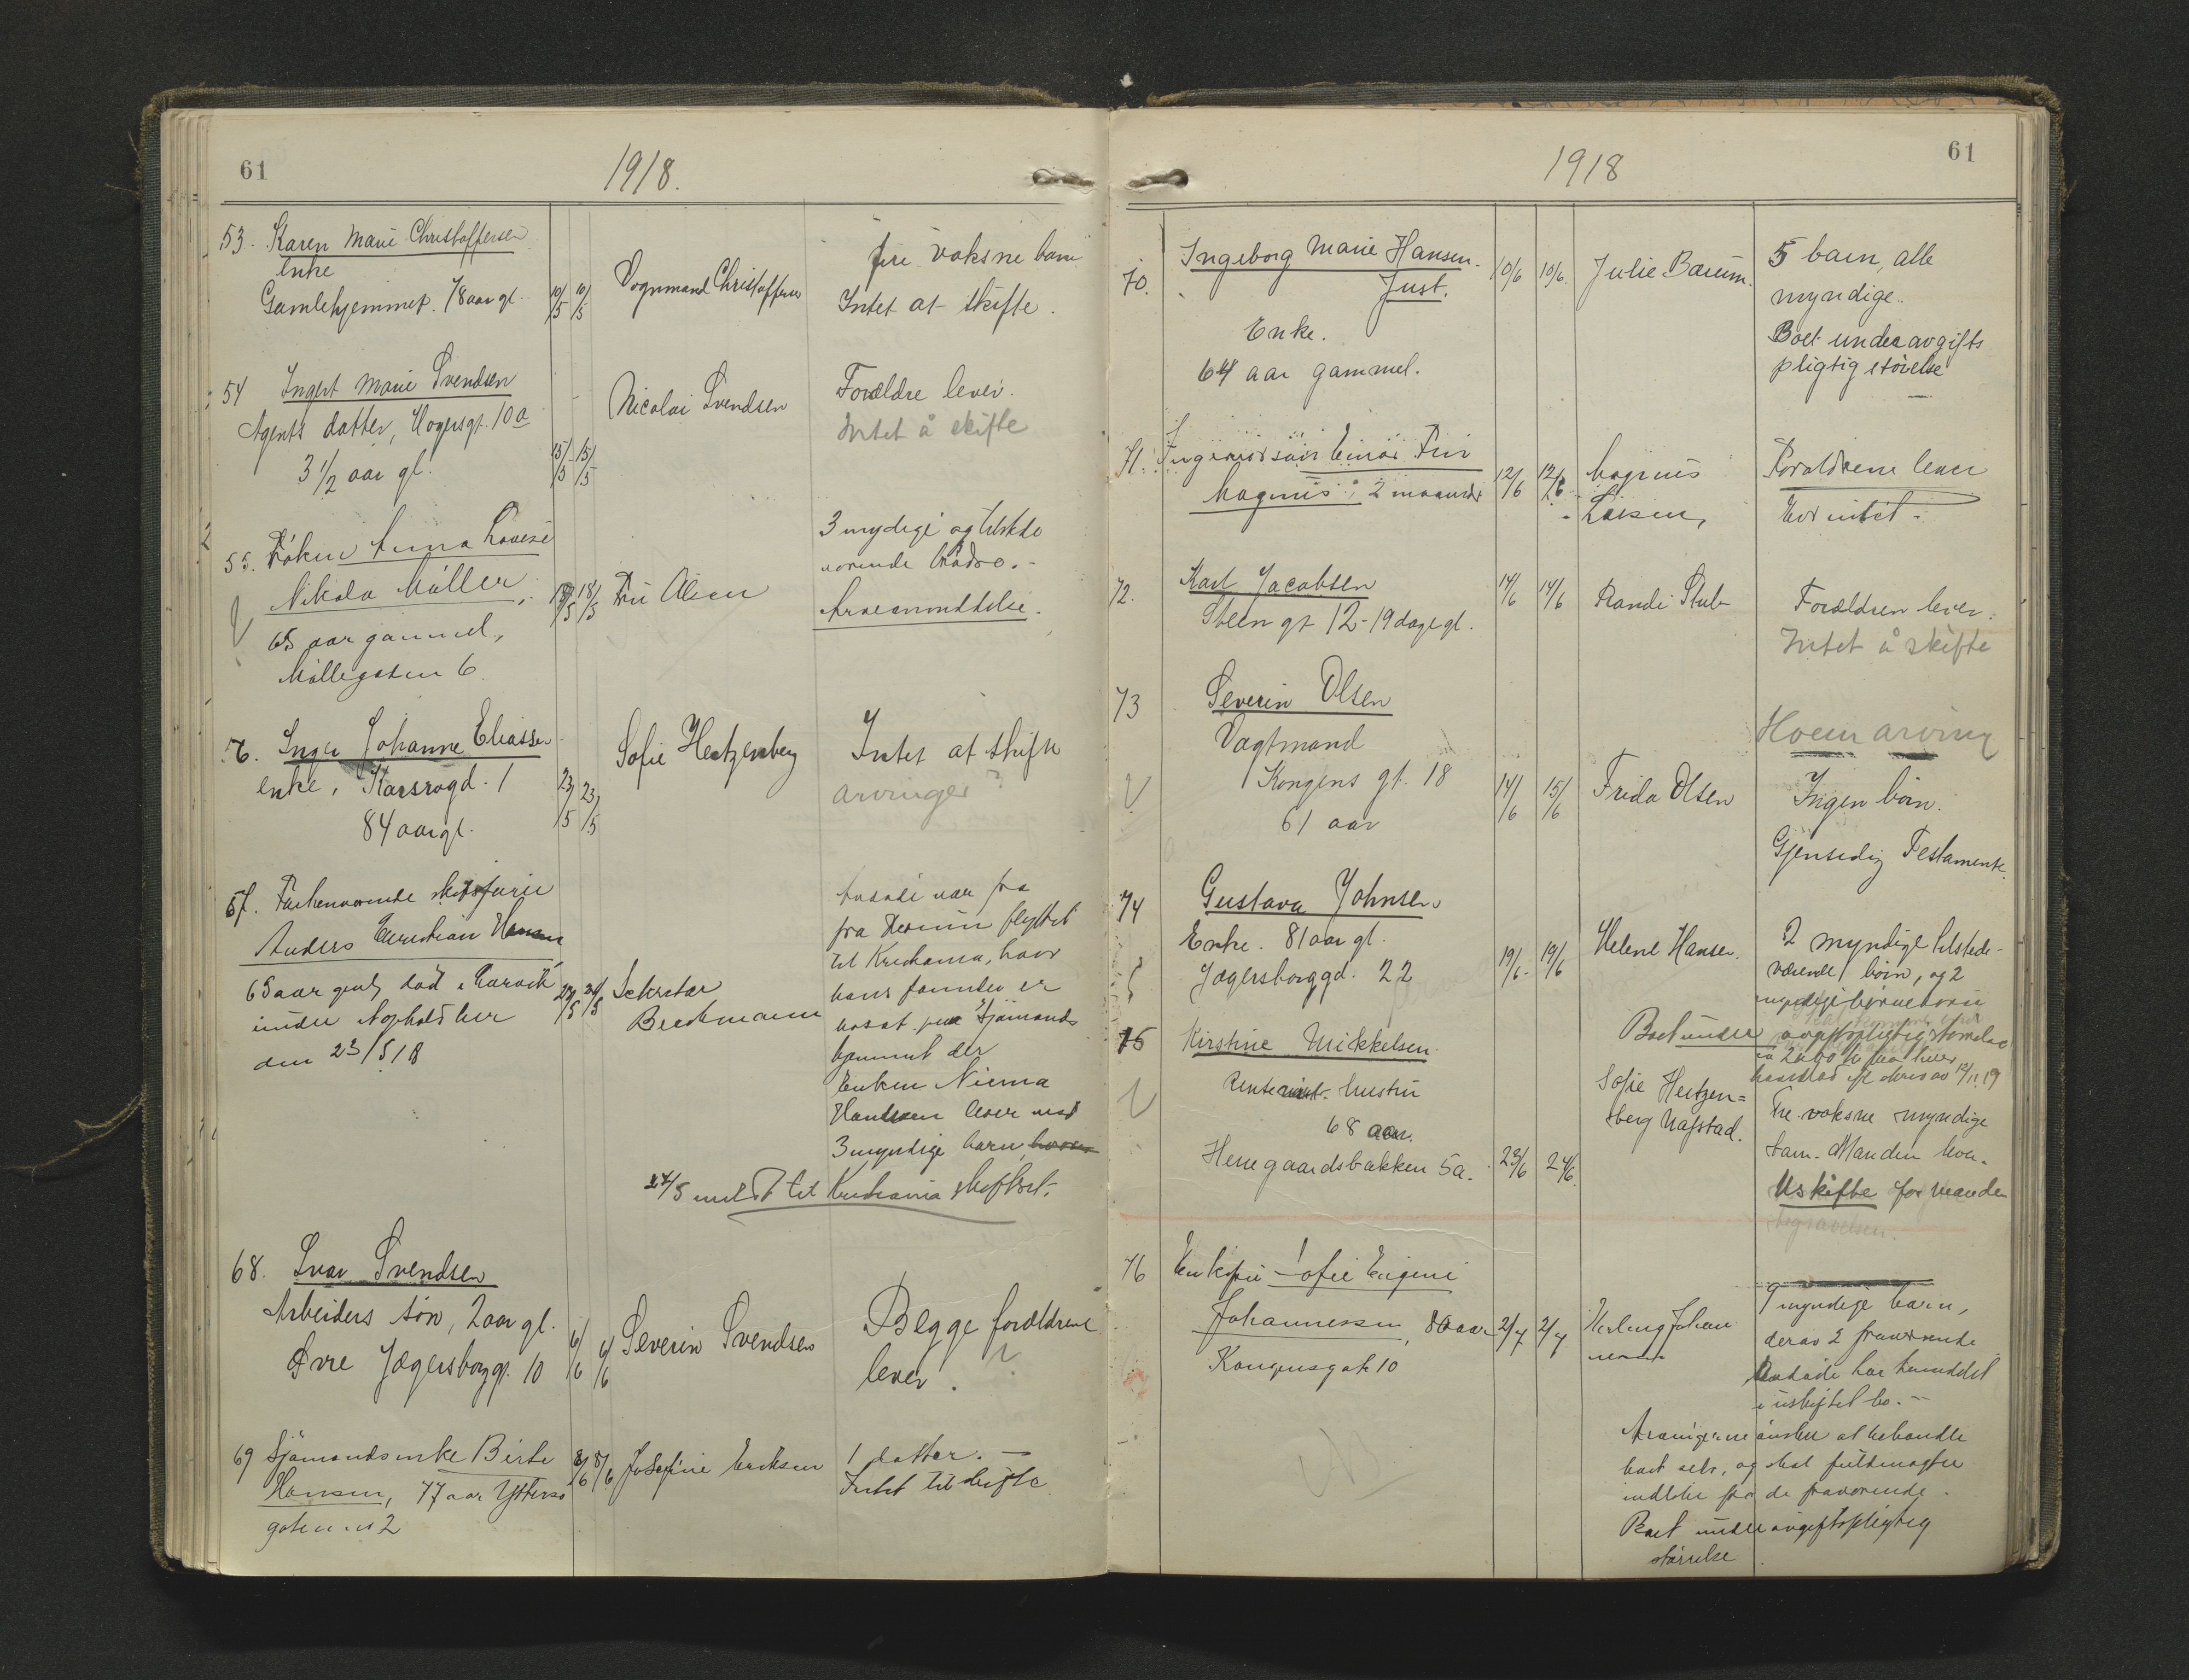 61
1918.
53. Karen Marie Christoffersen
Enke
Gamlehjemmet. 78 aar gl.
10/5 10/5
Vognmand Christoffersen
fire voksne barn
Intet at skifte.
54 Ingert Marie Svendsen
Agents datter, 10a
3 1/2 aar gl.
15/5 15/5
Nicolai Svendsen
Forældre lever.
Intet å skifte
55. Frøken Anna Lovise
Nikola Møller,
65 aar gammel,
Møllegaten 6
18/5 18/5
Fru Olsen
3 mydige og tilstede
værende
56. Inger Johanne Eliassen
enke, 1
84 aar gl.
23/5 23/5
Sofie Hertzenberg
Intet at skifte
arvinger?
57. Forhenværende
Anders Christian Hansen
65 aar død i Larvik
under Ophold her
den 23/5 18
24/5
Sekretær
avdøde var fra
fra flyttet
til Kristiania, hvor
hans familie er
bosat paa Sjømands
hjemmet der
Enken
Hansen lever med
3 myndige barn,
27/5 meldt til Kristiania skifteret.
68. Ivar Svendsen
Arbeiders søn, 2 aar gl.
Øvre Jegersborggt. 10
6/6 6/6
Severin Svendsen
Begge forældrene
lever.
69 Sjømandsenke Birte
Hansen, 77 aar
gaten no 2
8/6 8/6
Josefine Eriksen
1 datter.
Intet til skifte
1918
61
70.
Ingeborg Marie Hansen
Just.
Enke.
64 aar gammel.
10/6 10/6
Julie Bærum.
5 barn, alle
myndige.
Boet under avgifts
pligtig størrelse
71. Einar
Magnus, 2 maaneder
12/6 12/6
Magnus
Larsen,
Forældrene lever
Eier intet.
72. Karl Jacobsen
Steen gt 12 - 19 dage gl.
14/6 14/6
Randi Stub
Forældren lever.
Intet å skifte
73 Severin Olsen
Vagtmand
Kongens gt. 18
61 aar
14/6 15/6
Frida Olsen
Hvem arving
Ingen børn.
Gjensidig Testamente.
74 Gustava Johnsen
Enke. 81 aar gl.
Jegersborggd. 22
19/6 19/6
Helene Hansen.
2 myndige tilstede-
værende børn, og 2
myndige børnebørn
Boet under avgiftspligtig størrelse
75 Kirstine Mikkelsen
hustru
68 aar.
Herregaardsbakken 5a.
23/6 24/6.
Sofie Hertzen=
berg Nafstad.
Tre voksne myndige
barn. Manden lever.
Uskifte for manden
76 Enkefru Sofie Eugenie
Johannessen, 80 aar
Kongensgate 10
2/7 2/7
Erling Johan
nessen
9 myndige barn,
derav 2 fraværende
Avdøde har hensiddet
i uskiftet bo.
Arvingerne ønsker at behandle
boet selv, og skal fuldmagter
indhente fra de fraværende.
Boet under avgiftspligtig
størrelse